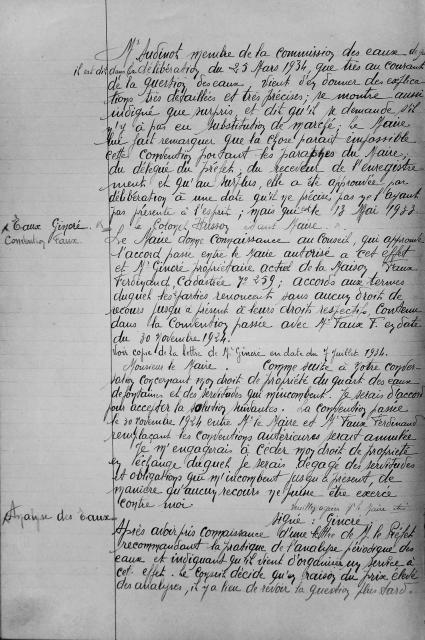 Mr Audinot membre de la commission des eaux
il est dit dans la délibération du 23 Mars 1934, que très au courant
de la question des eaux, vient d'en donner des explica-
tions très détaillées et très précises; se montre aussi
indigné que surpris, et dit qu'il se demande s'il
n'y a pas eu substitution de marché; le Maire
lui fait remarquer que la chose parait impossible
cette Convention portant les paraphes du Maire,
du délégué du Préfet, du receveur de l'enregistre-
ment et qu'au surplus, elle a été approuvée par
délibération à une date qu'il ne précise pas ne l'ayant
pas présente à l'esprit; mais qui est le 13 Mai 1933
le Colonel Hersson étant Maire.
Eaux Ginoré.
Convention Eaux
Le Maire donne connaissance au Conseil, qui approuve
l'accord passé entre le Maire autorisé à cet effet
et Mr Ginoré propriétaire actuel de la Maison Faux
Ferdinand, Cadastrée No 259; accords aux termes
duquel les parties renoncent sans aucun droit de
recours jusqu'à présent à leurs droits respectifs, contenue
dans la Convention passée avec Mr Faux F. en date
du 30 novembre 1924.
Voir copie de la lettre de Mr Ginoré en date du 7 Juillet 1934.
Monsieur le Maire. Comme suite à votre conver-
sation concernant mon droit de propriété du quart des eaux
de fontaines et des servitudes qui m'incombent. Je serais d'accord
pour accepter la solution suivantes. La convention passée
le 30 novembre 1924 entre Mr le Maire et Mr Faux Ferdinand
remplaçant les Conventions antérieures serait annulée
Je m'engagerais à céder mon droit de propriété
en échange duquel je serais dégagé des servitudes
et obligations qui m'incombent jusqu'à présent, de
manière qu'aucun recours ne puisse être exercé
contre moi.
Veuillez agréer Mr le Maire etc
Signé: Ginoré
Analyse des Eaux
Après avoir pris connaissance d'une lettre de Mr le Préfet
recommandant la pratique de l'analyse périodique des
eaux et indiquant qu'il vient d'organiser un service à
cet effet. Le Conseil décide qu'en raison du prix élevé
des analyses, il y a lieu de revoir la question plus tard.